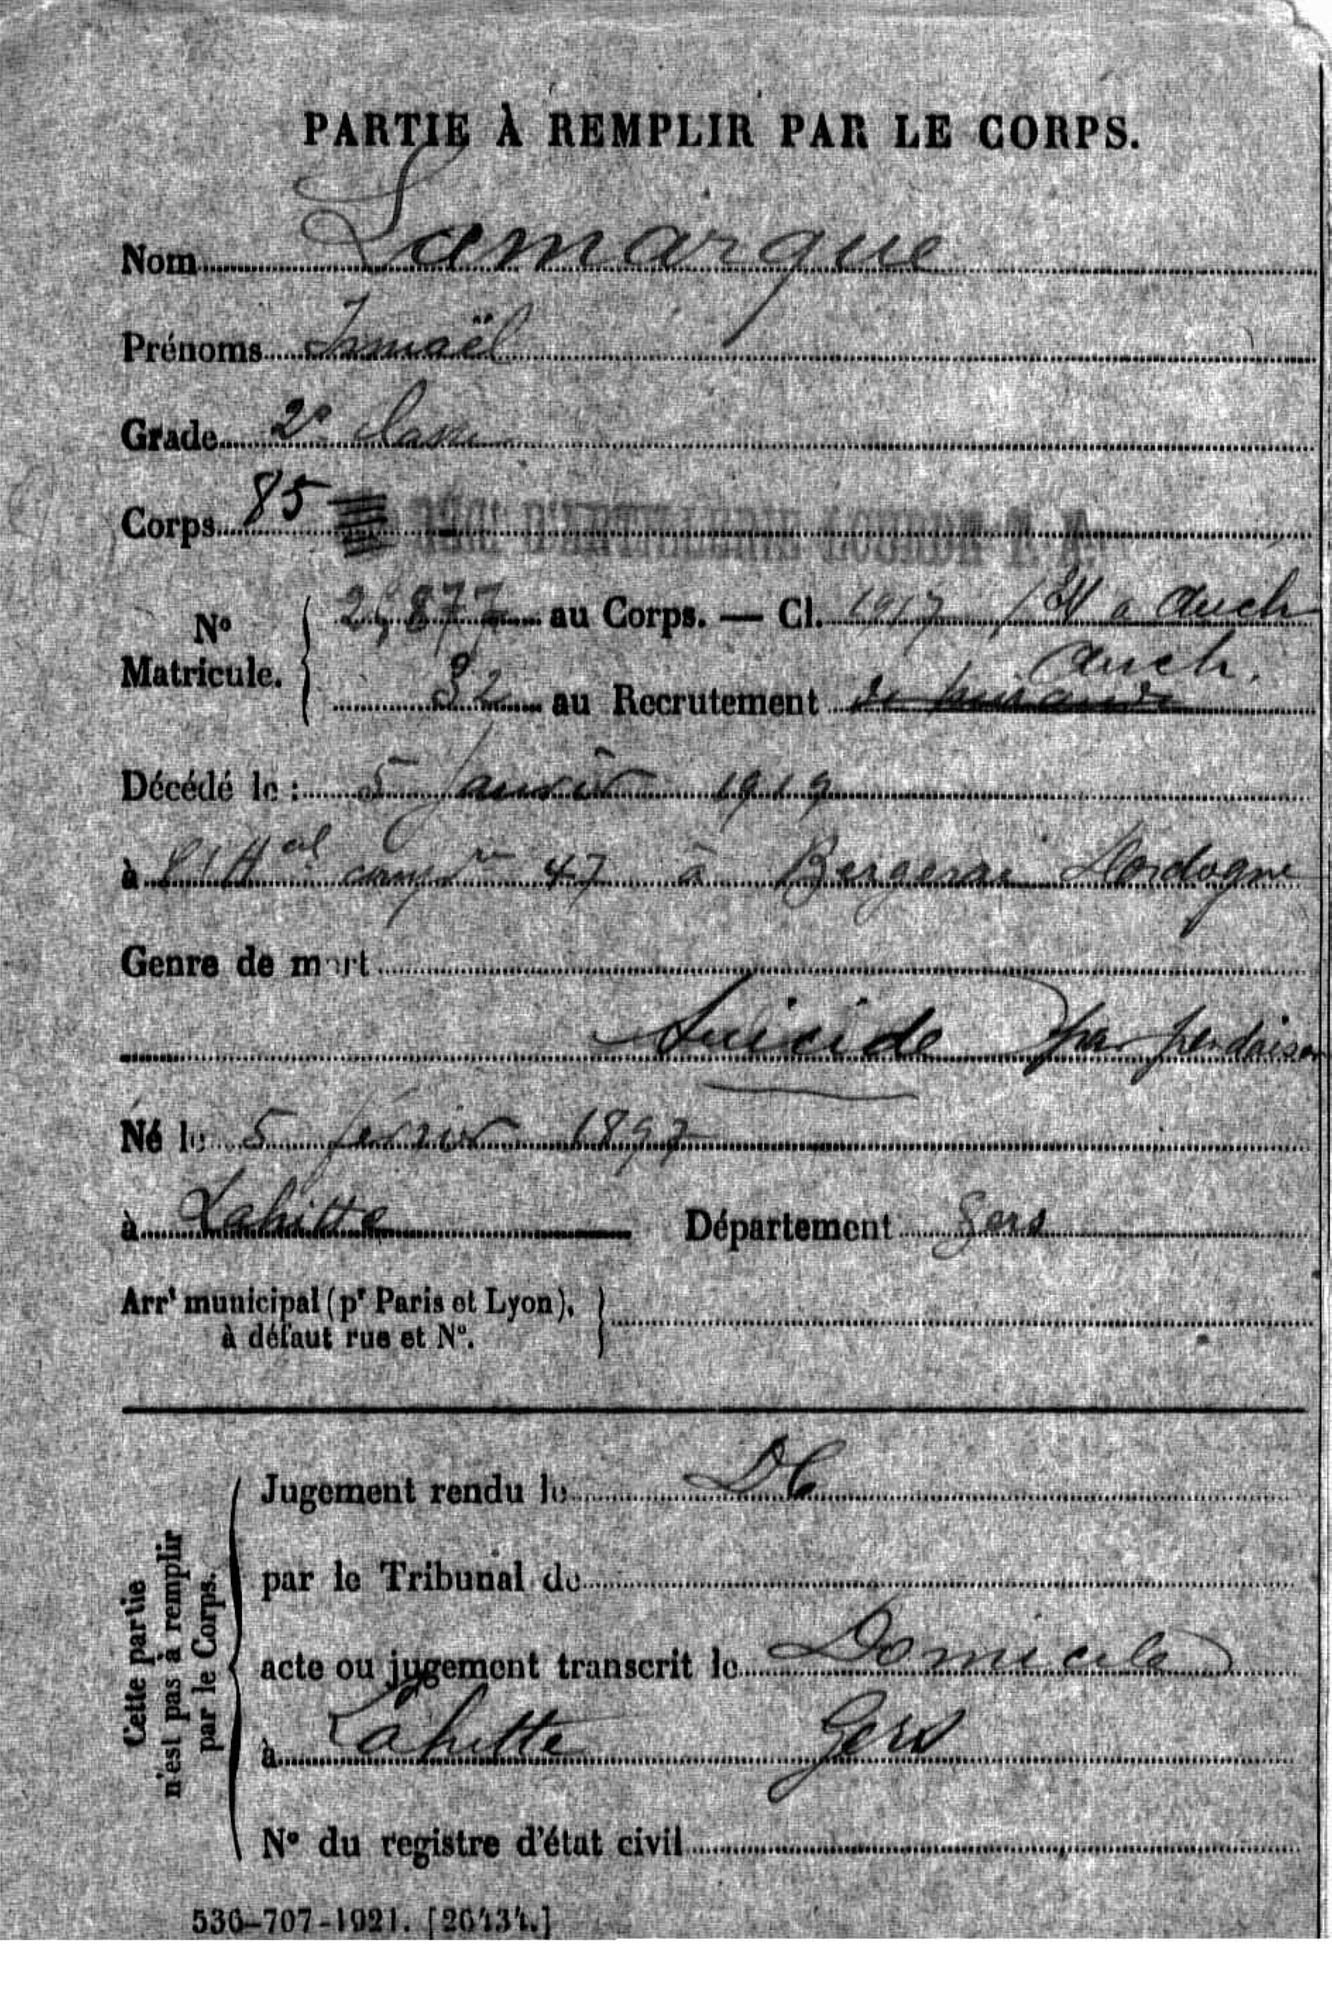 PARTIE À REMPLIR PAR LE CORPS.
Nom Lamarque
Prénoms Ismaël
Grade 2e classe
Corps 85 D'ARTILLERIE LOURDE
No Matricule. 2,877 au Corps. — Cl. 1917 à Auch
Auch.
32 au Recrutement de Mirande
Décédé le : 5 Janvier 1919
à l'Hal compre 47 à Bergerac Dordogne
Genre de mort
Suicide par pendaison
Né le 5 février 1897
à Lahitte Département Gers
Arrt municipal (pr Paris et Lyon),
à défaut rue et No.
Cette partie
n'est pas à remplir
par le Corps.
Jugement rendu le DC
par le Tribunal de
acte ou jugement transcrit le Domicile
à Lahitte Gers
No du registre d'état civil
536-707-1921. [26434.]